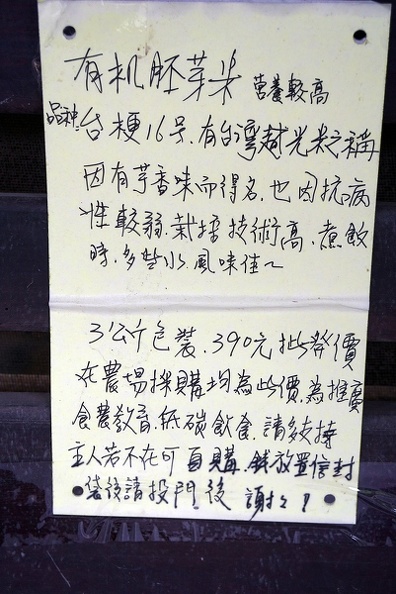 有机胚芽米 营養較高
品種:台梗16号.有台灣越光米之稱
因有芋香味而得名.也因抗病
性較弱.栽培技術高.煮飯
時.多些水.風味佳~
3公斤包裝.390元批發價
在農場採購均為此價.為推廣
食農教育.低碳飲食.請多支持
主人若不在可自購.錢放置信封
袋後請投門後 謝々!